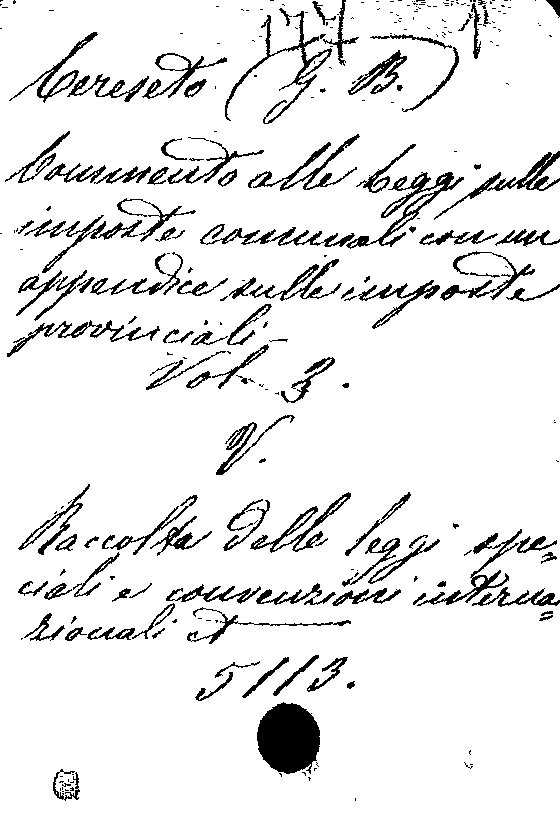 177 1
Cereseto (G. B.)
Commento alle Leggi sulle
imposte comunali con un
appendice sulle imposte
provinciali
Vol. 3.
V.
Raccolta delle leggi spe=
ciali e convenzioni interna=
zionali et
5113.